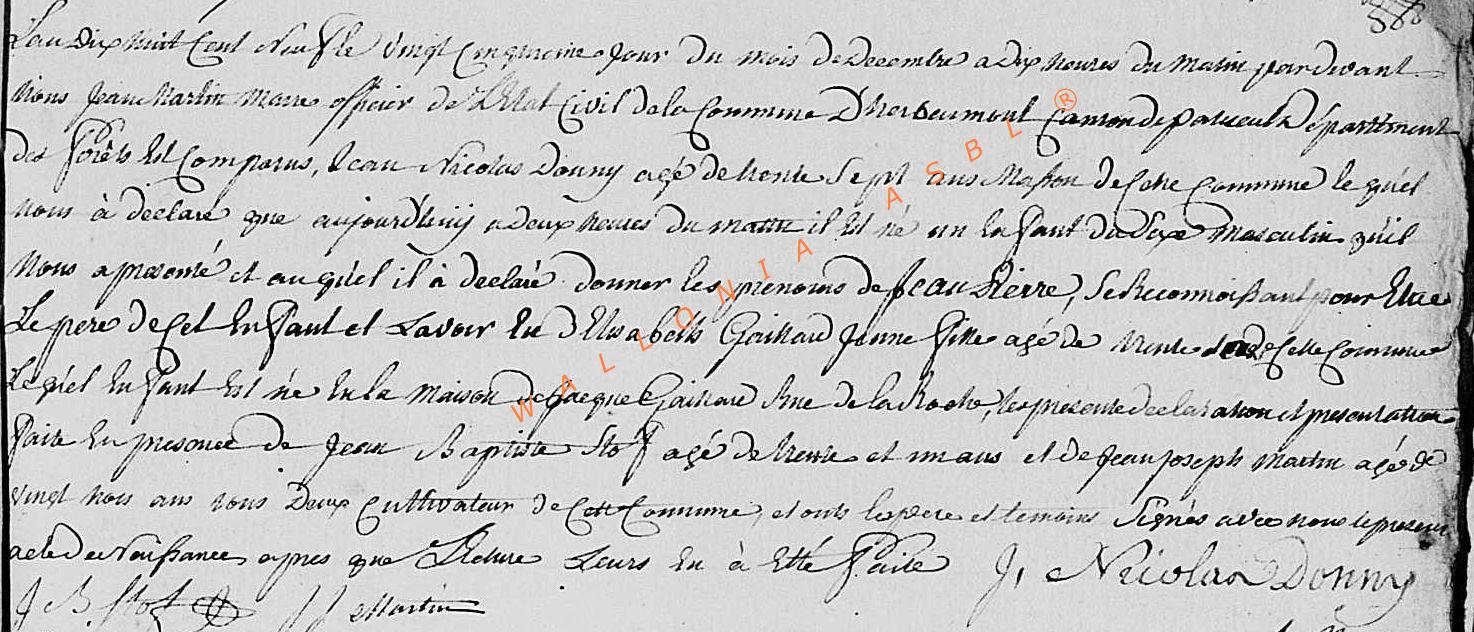 L'an Dix huit Cent Neuf le vingt cinquieme jour du mois de Decembre a Dix heures du matin pardevant
Nous Jean Martin Maire officier de L'Etat Civil de la Commune D'herbeumont Canton de paliseul Département
des Forêts Est Comparus, Jean Nicolas Donny agé de trente Sept ans Masson de Cette Commune le quel
nous à declaré que aujourd'huij a Deux heures du matin il Est né un Enfant du Sexe Masculin qu'il
Nous a presenté et au quel il à declaré donner les prenoms de Jean Pierre, Se Reconnoissant pour Etre
Le pere de Cet Enfant et Lavoir Eu d'Elisabeth Gaillard Jeune fille agé de trente de Cette Commune
Le quel Enfant Est né En la Maison de Jacque Gaillard Rue de la Roche, les presente declaration et presentation
faite En presence de Jean Baptiste Stof agé de trente et un ans et de Jean Joseph Martin agé de
vingt trois ans tous Deux Cultivateur de Cette Commune, et onts les pere et temoins Signés avec nous le present
acte de Naissance apres que Lecture Leurs En à Etté faite J. Nicolas Donny
J B Stof J J Martin
WALLONIA ASBL ®